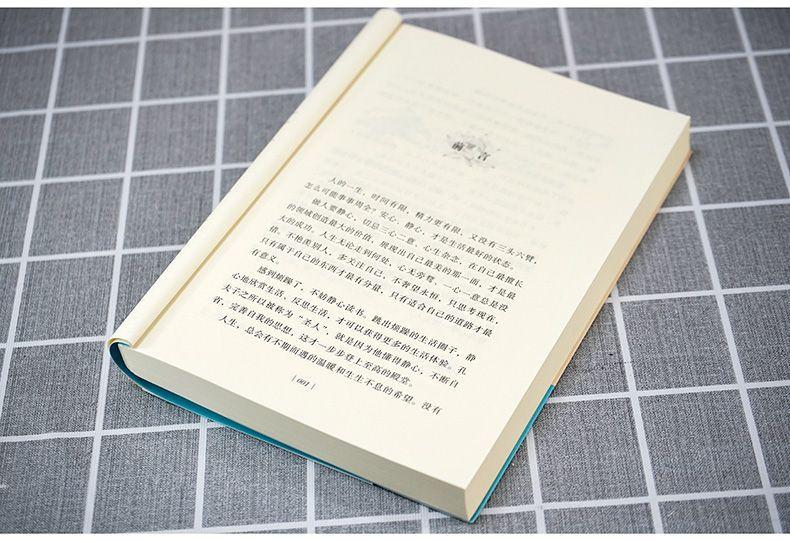 前言
人的一生，时间有限，精力更有限，又没有三头六臂，
怎么可能事事周全？安心、静心，才是生活最好的状态。
做人要静心，切忌三心二意、心生杂念，在自己最擅长
的领域创造最大的价值，展现出自己最美的那一面，才是最
大的成功。人生无论走到何处，心无旁骛、一心一意总是没
错。不艳羡别人，多关注自己，不奢望永恒，只思考现在，
只有属于自己的东西才最有分量，只有适合自己的道路才最
有意义。
感到烦躁了，不妨静心读书，跳出烦躁的生活圈子，静
心地欣赏生活，反思生活，才可以获得更多的生活体验。孔
夫子之所以被称为“圣人”，就是因为他懂得静心，不断自
省，完善自我的思想，这才一步步登上至高的殿堂。
人生，总会有不期而遇的温暖和生生不息的希望。没有
001